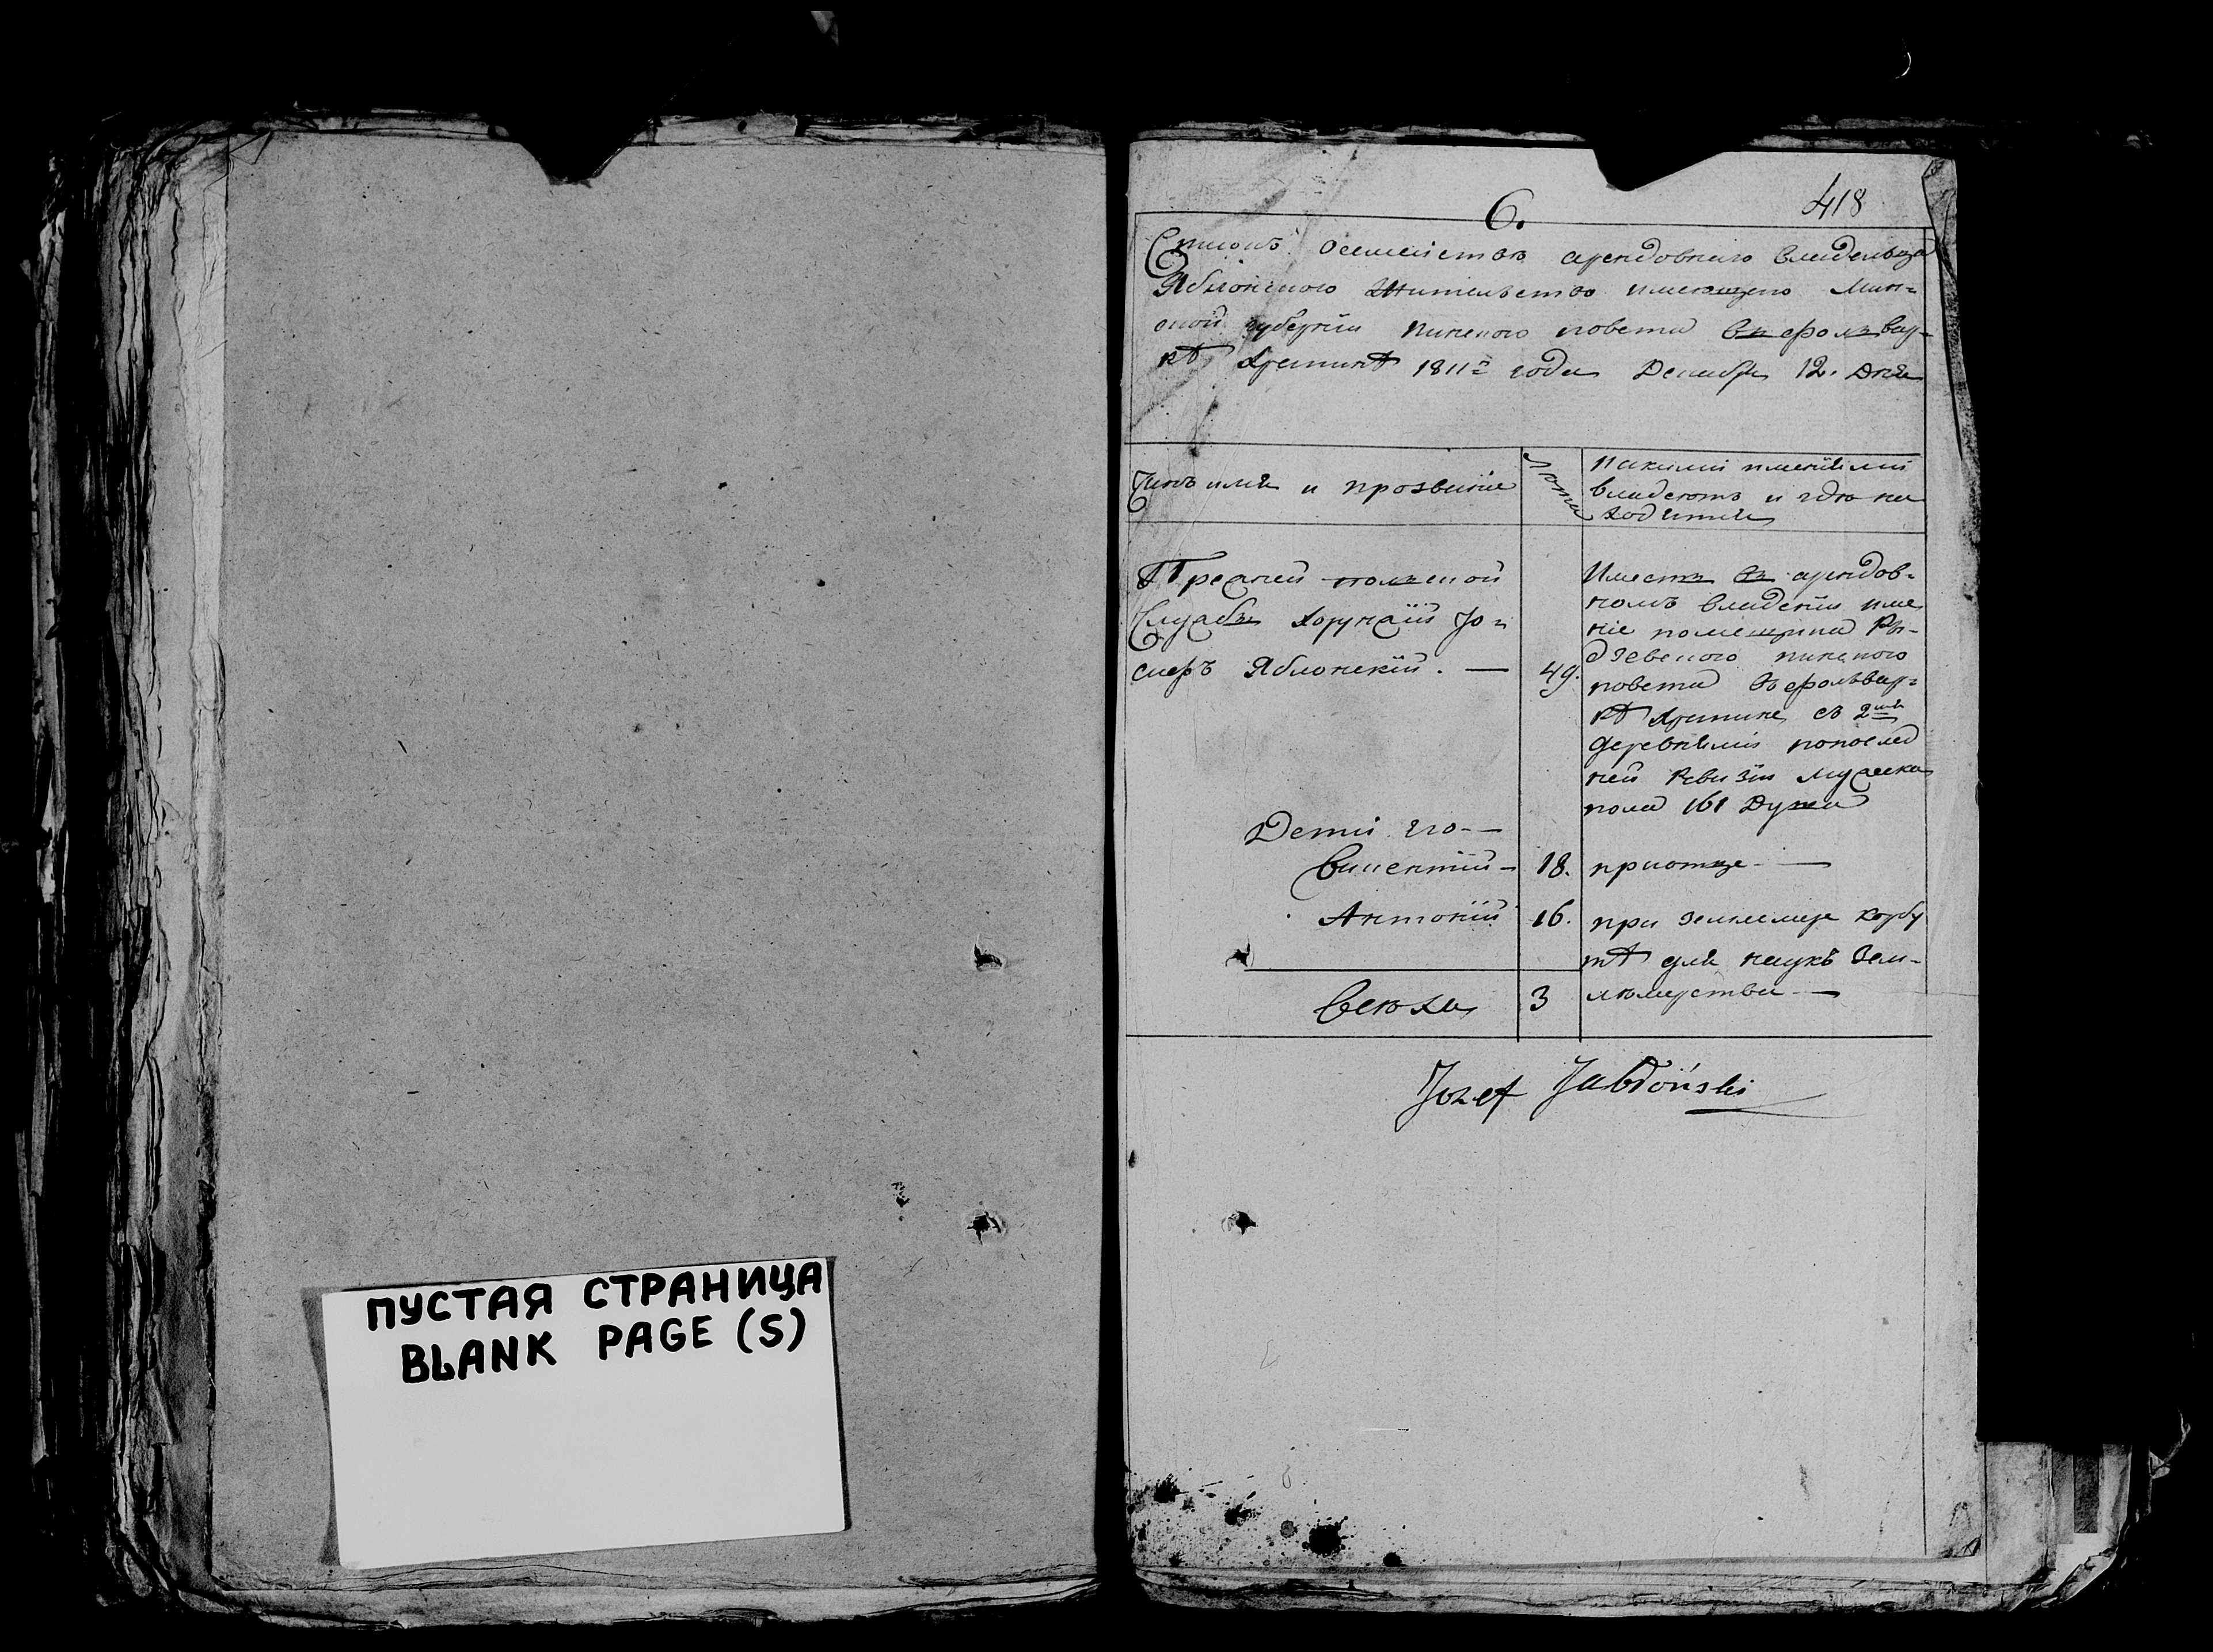 ПУСТАЯ СТРАНИЦА
BLANK PAGE (S)
418
6.
Списокъ осемействѣ арендовнаго владельца
Яблонского Жительство имеющего Мин=
ской губерніи пинского повета въ фольвар=
кѣ 1811го года Декабря 12. дня
Чинъ имя и прозвиніе
Лѣта
какими именіями
владеютъ и гдѣ на
ходится
Прежней польской
Службы Хорунжій Ю=
сифъ Яблонскій. —
49.
Имеетъ въ арендов=
номъ владеніи име
ніе помещика Ры-
дзевского пинского
повета въ фольвар=
кѣ съ 2мя
деревнями попослед
ней Ревизіи мужеска
пола 161 Душа
Дети его —
Викентій — 18. приотце —
Антоній 16. при землемере Корбу
тѣ для наукъ Зем-
лѣмерства —
Всѣхъ 3
Jozef Jabłoński